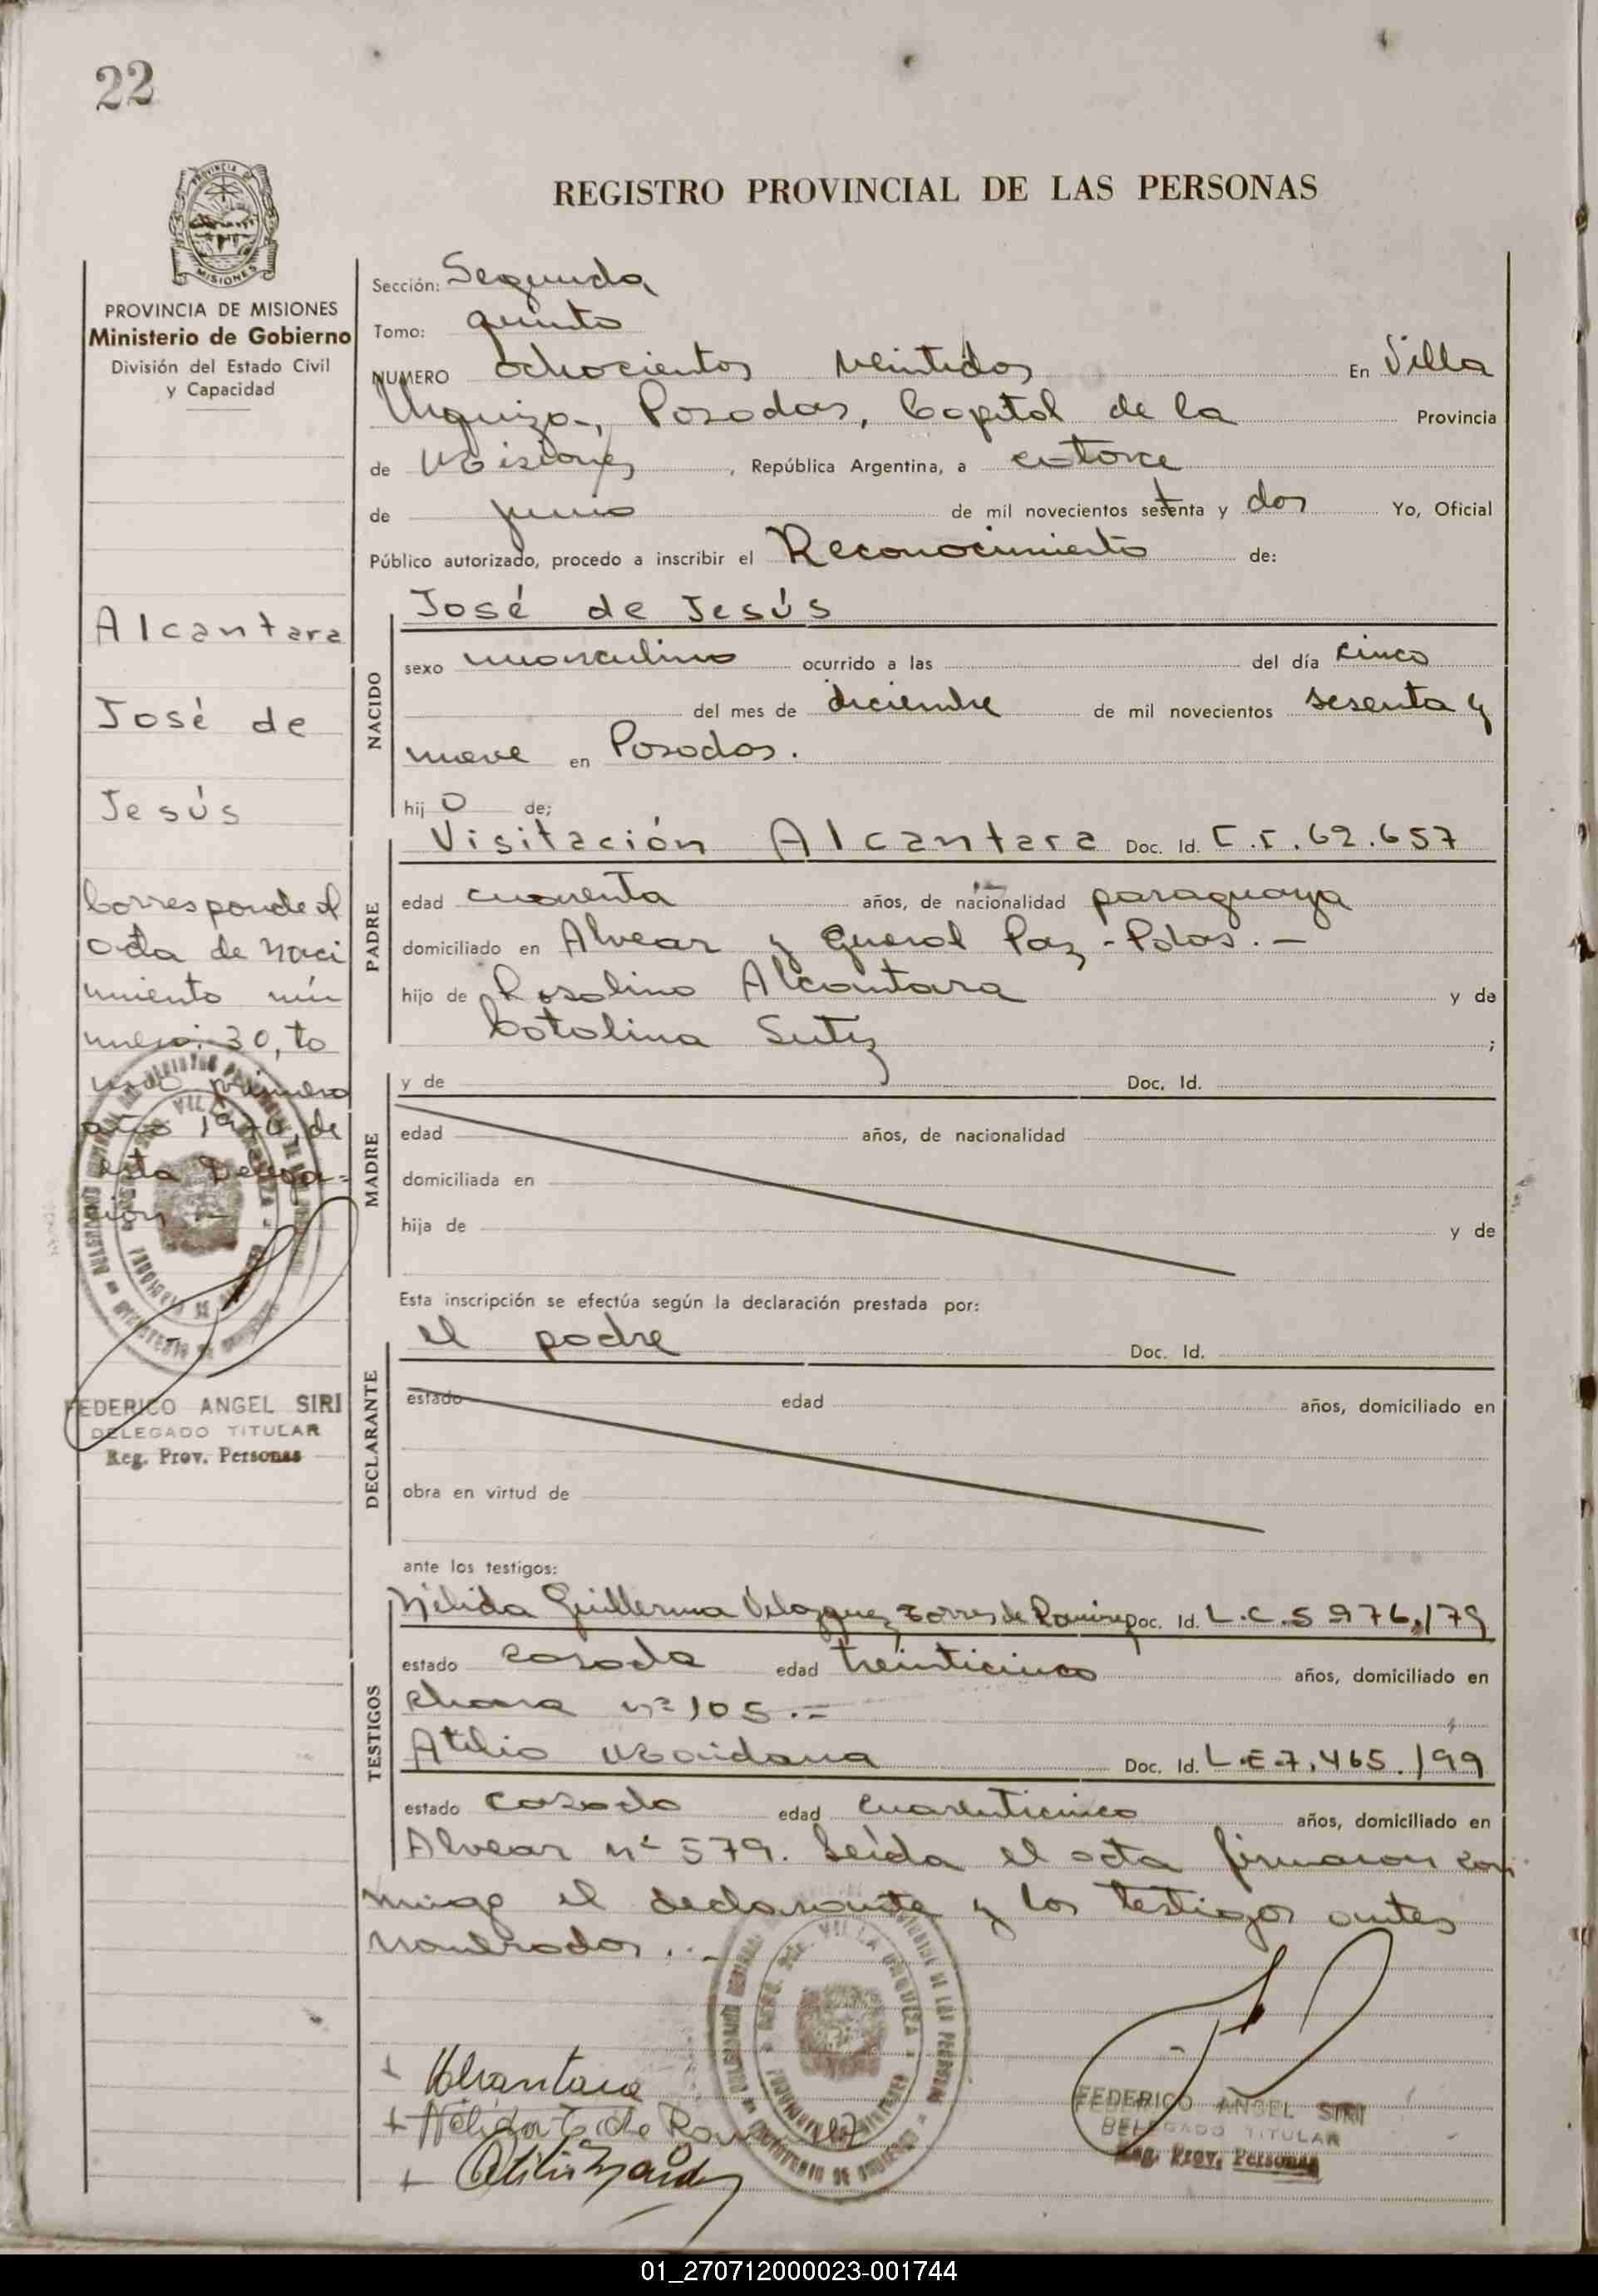 22
PROVINCIA DE
MISIONES
REGISTRO PROVINCIAL DE LAS PERSONAS
PROVINCIA DE MISIONES
Ministerio de Gobierno
División del Estado Civil
y Capacidad
Sección: Segunda
Tomo: quinto
NUMERO ochocientos veintidos En Villa
Urquiza-, Posadas, Capital de la Provincia
de Misiones, República Argentina, a catorce
de junio de mil novecientos setenta y dos Yo, Oficial
Público autorizado, procedo a inscribir el Reconocimiento de:
Alcantara
José de
Jesús
Corresponde al
acta de naci
miento nú
mero: 30, to
mo primero
año 1970, de
esta Delega-
ción.-
FEDERICO ANGEL SIRI
DELEGADO TITULAR
Reg. Prov. Personas
NACIDO
José de Jesús
sexo masculino ocurrido a las del día cinco
del mes de diciembre de mil novecientos sesenta y
nueve en Posadas.
hijo de;
PADRE
Visitación Alcantara Doc. Id. C.I. 62.657
edad cuarenta años, de nacionalidad paraguaya
domiciliado en Alvear y General Paz - Pdas. -
hijo de Rosalino Alcantara y de
Catalina ;
MADRE
y de Doc. Id.
edad años, de nacionalidad
domiciliada en
hija de y de
Esta inscripción se efectúa según la declaración prestada por:
DECLARANTE
el padre Doc. Id.
estado edad años, domiciliado en
obra en virtud de
ante los testigos:
TESTIGOS
Nélida Guillerma Velazquez Torres de Ramirez Doc. Id. L.C. 5 976.179
estado casada edad treinticinco años, domiciliado en
chacra nº 105.=
Atilio Maidana Doc. Id. L.E. 7.465.199
estado casado edad cuarenticinco años, domiciliado en
Alvear nº 579. Leída el acta firmaron con
migo el declarante y los testigos antes
nombrados..-
+ VAlcantara
+ Nélida T. de Ramirez
+ Atilio Maidana
FEDERICO ANGEL SIRI
DELEGADO TITULAR
Reg. Prov. Personas
01_270712000023-001744